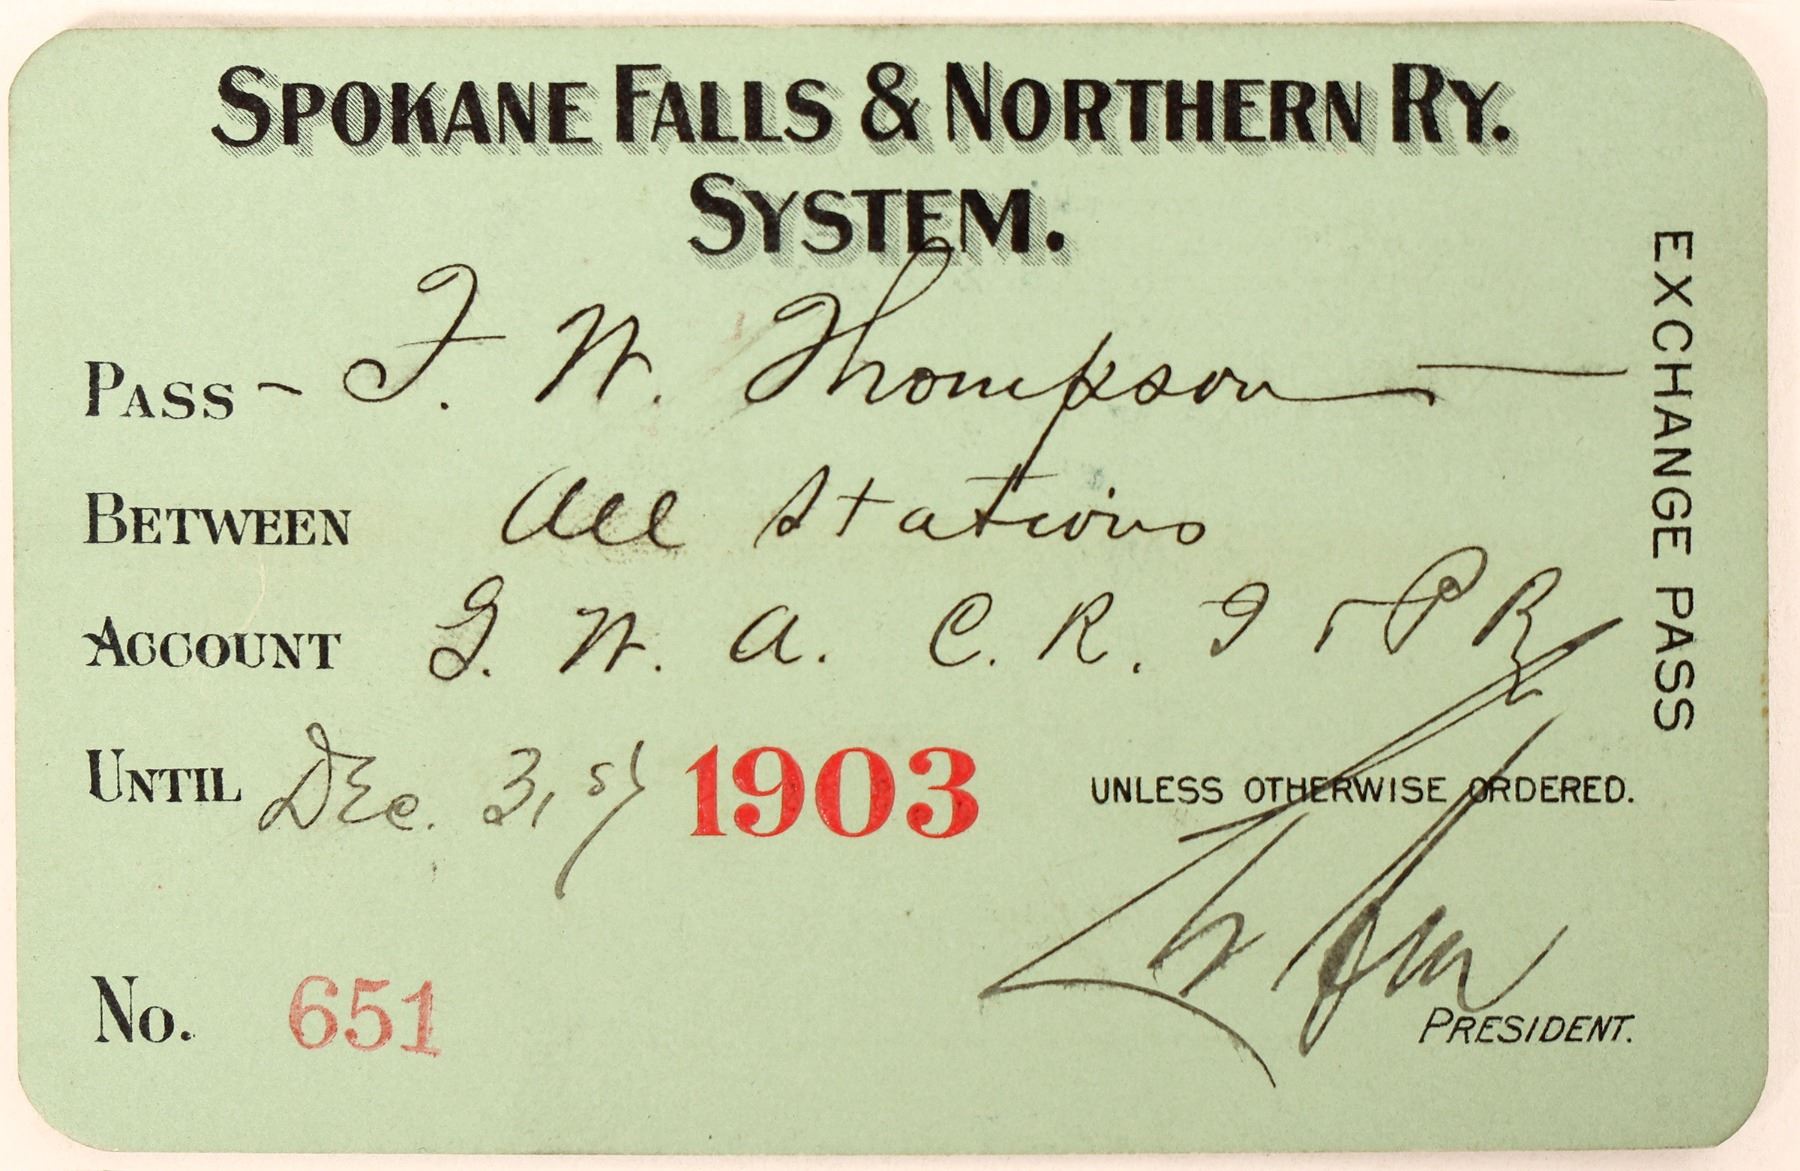 SPOKANE FALLS & NORTHERN RY.
SYSTEM.
PASS - F. W. Thompson
BETWEEN All Stations
ACCOUNT G. W. A. C. R. I & P R
UNTIL Dec. 31st 1903 UNLESS OTHERWISE ORDERED.
No. 651
PRESIDENT.
EXCHANGE PASS